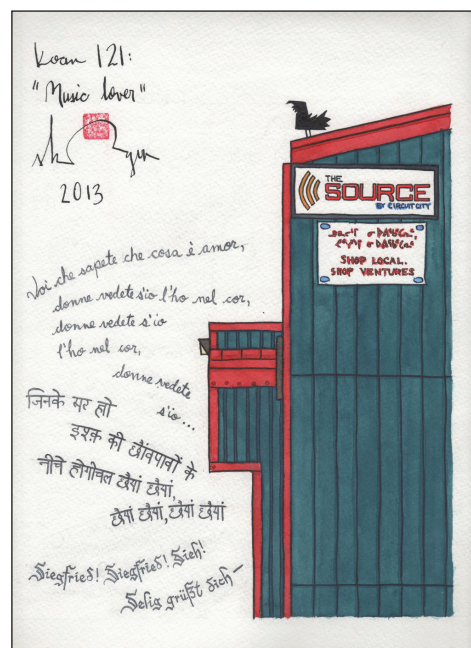 Koan 121:
"Music lover"
2013
THE
SOURCE
BY CIRCUIT CITY
SHOP LOCAL.
SHOP VENTURES
Voi che sapete che cosa è amor,
donne vedete s'io l'ho nel cor,
donne vedete s'io
l'ho nel cor,
donne vedete
s'io...
जिनके सर हो
इश्क़ की छाँवपावों के
नीचे होगीचल छैयां छैयां,
छैयां छैयां, छैयां छैयां
Siegfried! Siegfried! Sieh!
Selig grüßt dich—